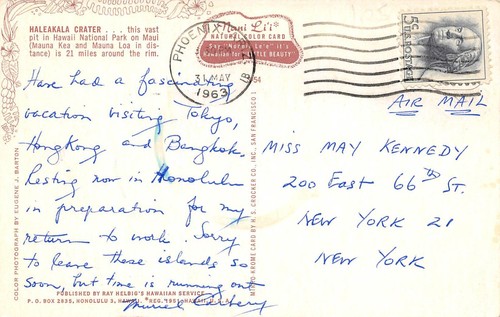 HALEAKALA CRATER . . . this vast
pit in Hawaii National Park on Maui
(Mauna Kea and Mauna Loa in dis-
tance) is 21 miles around the rim.
Nani Li'i
NATURAL COLOR CARD
Hawaiian for LITTLE BEAUTY
PHOENIX
31 MAY
1963
5¢
AIR MAIL
Have had a fascinating
vacation visiting Tokyo,
HongKong and Bangkok.
Resting now in Honolulu
in preparation for my
return to work. Sorry
to leave these islands so
soon, but time is running out
Muriel Carbery
MISS MAY KENNEDY
200 EAST 66TH ST.
NEW YORK 21
NEW YORK
COLOR PHOTOGRAPH BY EUGENE J. BARTON
MIRRO-KROME CARD BY H. S. CROCKER CO., INC., SAN FRANCISCO 1
PUBLISHED BY RAY HELBIG'S HAWAIIAN SERVICE
P. O. BOX 2835, HONOLULU 3, HAWAII